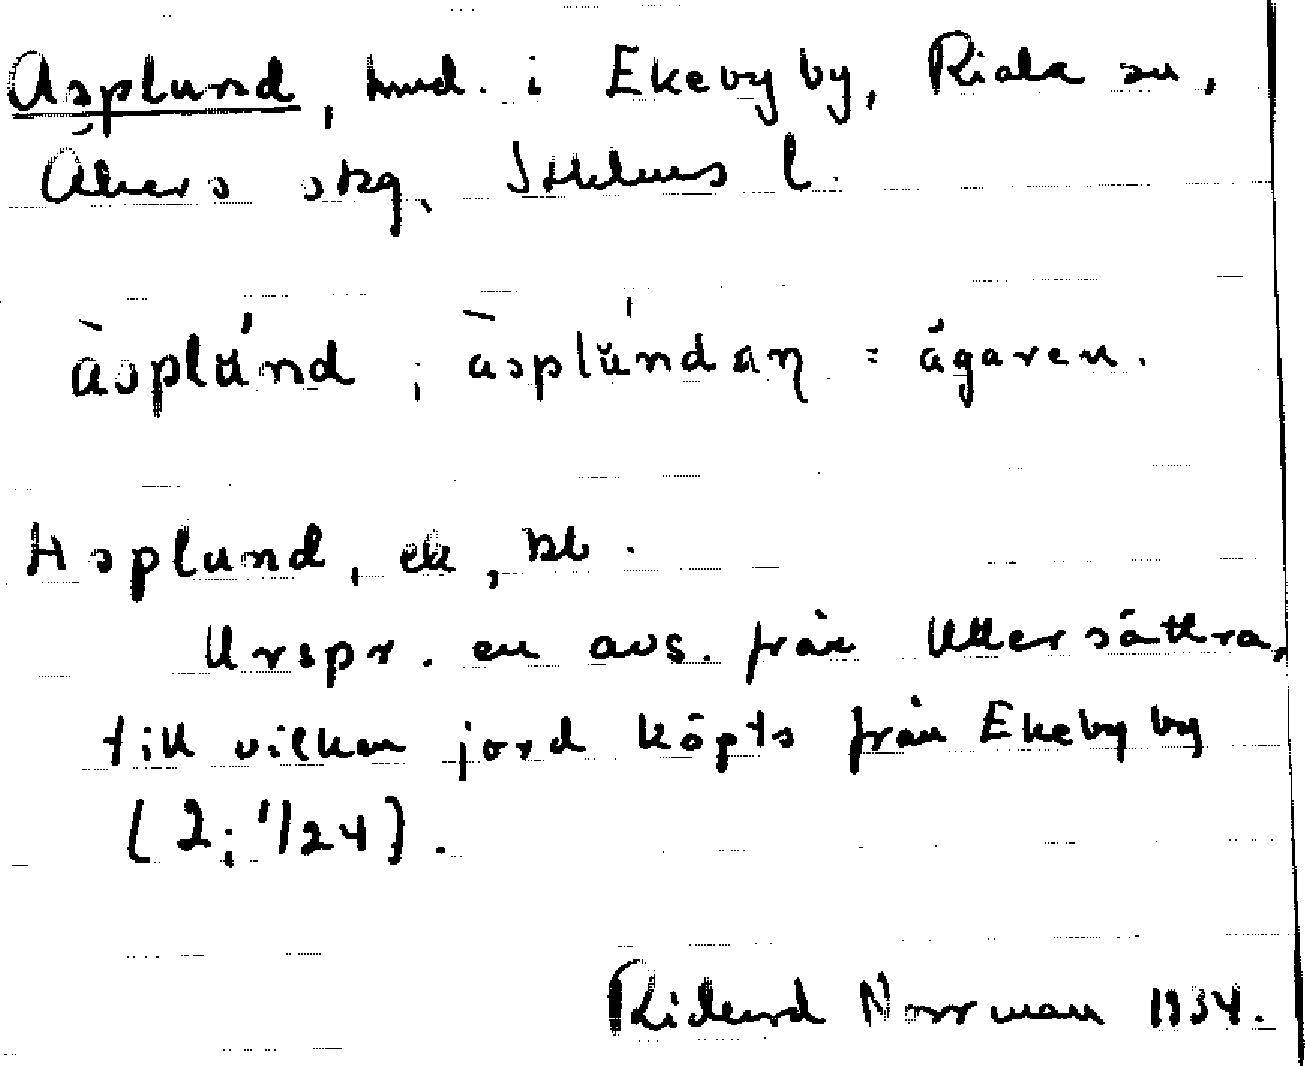 Asplund, hmd. i Ekeby by, Riala sn,
Åkers skg, Sthlms l.
àsplŭ́nd ; àsplŭ́ndan = ägaren.
Asplund, ek, kb.
Urspr. en avs. från Uttersättra,
till vilken jord köpts från Ekeby by
(2; 1/24).
Rickard Norrman 1934.